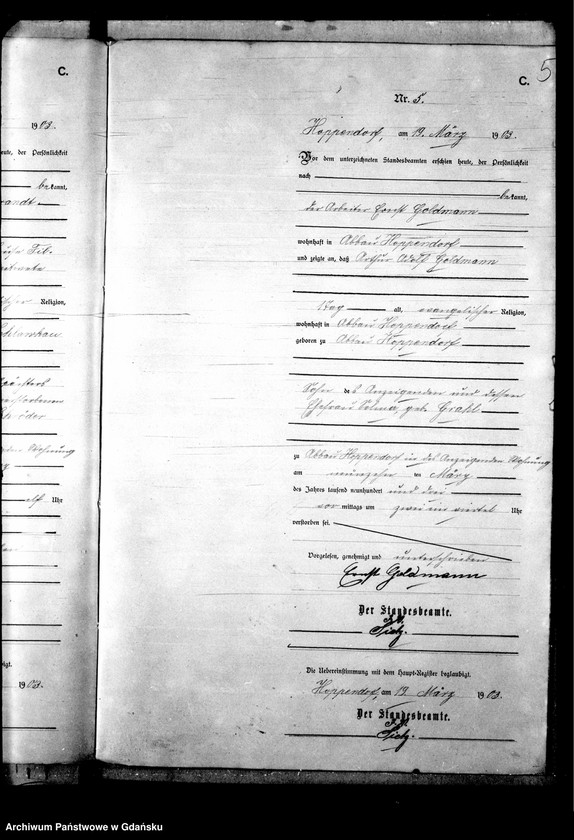 C.
1903.
eute, der Persönlichkeit
bekannt,
Religion,
Wohnung
elf Uhr
1903.
C. 5
Nr. 5.
Hoppendorf, am 19. März 1903.
Vor dem unterzeichneten Standesbeamten erschien heute, der Persönlichkeit
nach
bekannt,
der Arbeiter Ernst Goldmann
wohnhaft in Abbau Hoppendorf
und zeigte an, daß Arthur Adolf Goldmann
1 Tag alt, evangelischer Religion,
wohnhaft in Abbau Hoppendorf
geboren zu Abbau Hoppendorf
Sohn des Anzeigenden und dessen
Ehefrau Selma geb. Grahl
zu Abbau Hoppendorf in des Anzeigenden Wohnung
am ten März
des Jahres tausend neunhundert und drei
vor mittags um zwei ein viertel Uhr
verstorben sei.
Vorgelesen, genehmigt und unterschrieben
Ernst Goldmann
Der Standesbeamte.
Die Uebereinstimmung mit dem Haupt-Register beglaubigt.
Hoppendorf, am 19. März 1903.
Der Standesbeamte.
Archiwum Państwowe w Gdańsku